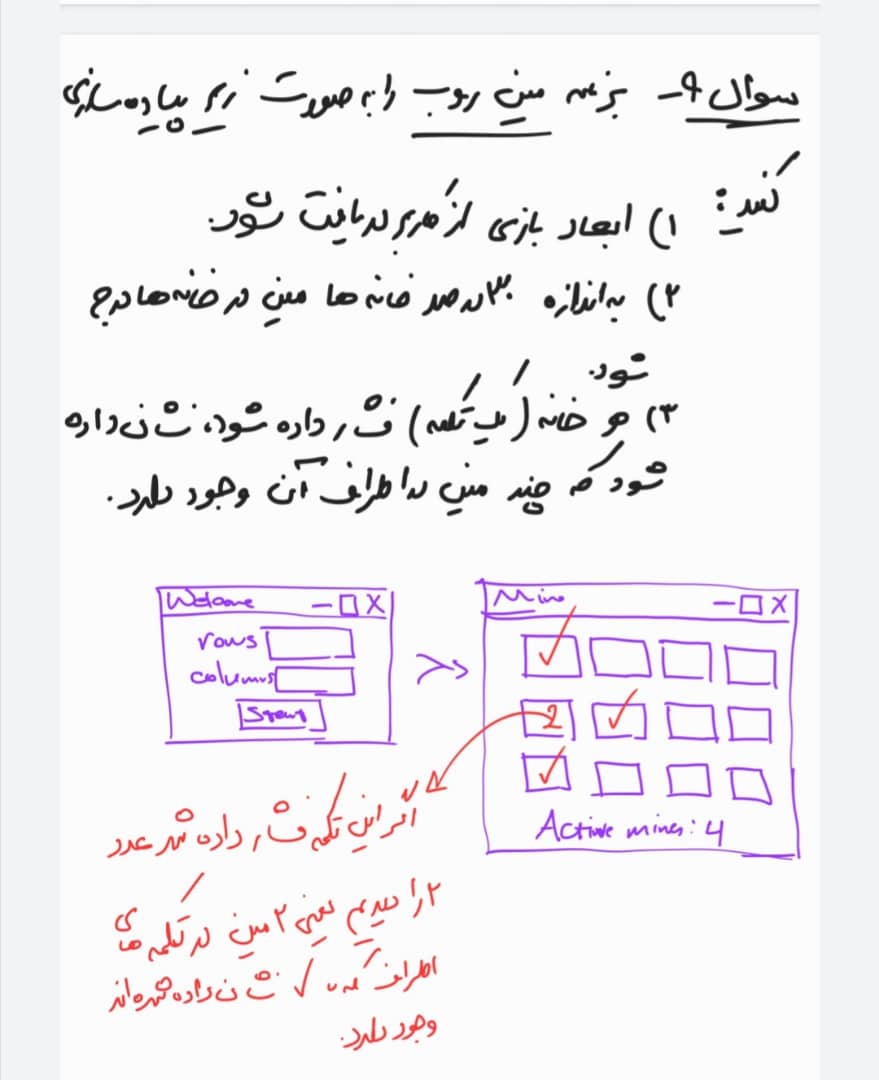 سوال ۹- برنامه مین روب را به صورت زیر پیاده سازی
کنید:
۱) ابعاد بازی از کاربر دریافت شود.
۲) به اندازه ۳۰ درصد خانه ها مین در خانه ها درج
شود.
۳) هر خانه (یک تکمه) فشار داده شود، نشان داده
شود که چند مین در اطراف آن وجود دارد.
Welcome
rows
columns
Start
Mine
2
Active mines: 4
اگر این تکمه فشار داده شد عدد
۲ را دیدیم یعنی ۲ مین در تکمه های
اطراف که با ✓ نشان داده شده اند
وجود دارد.